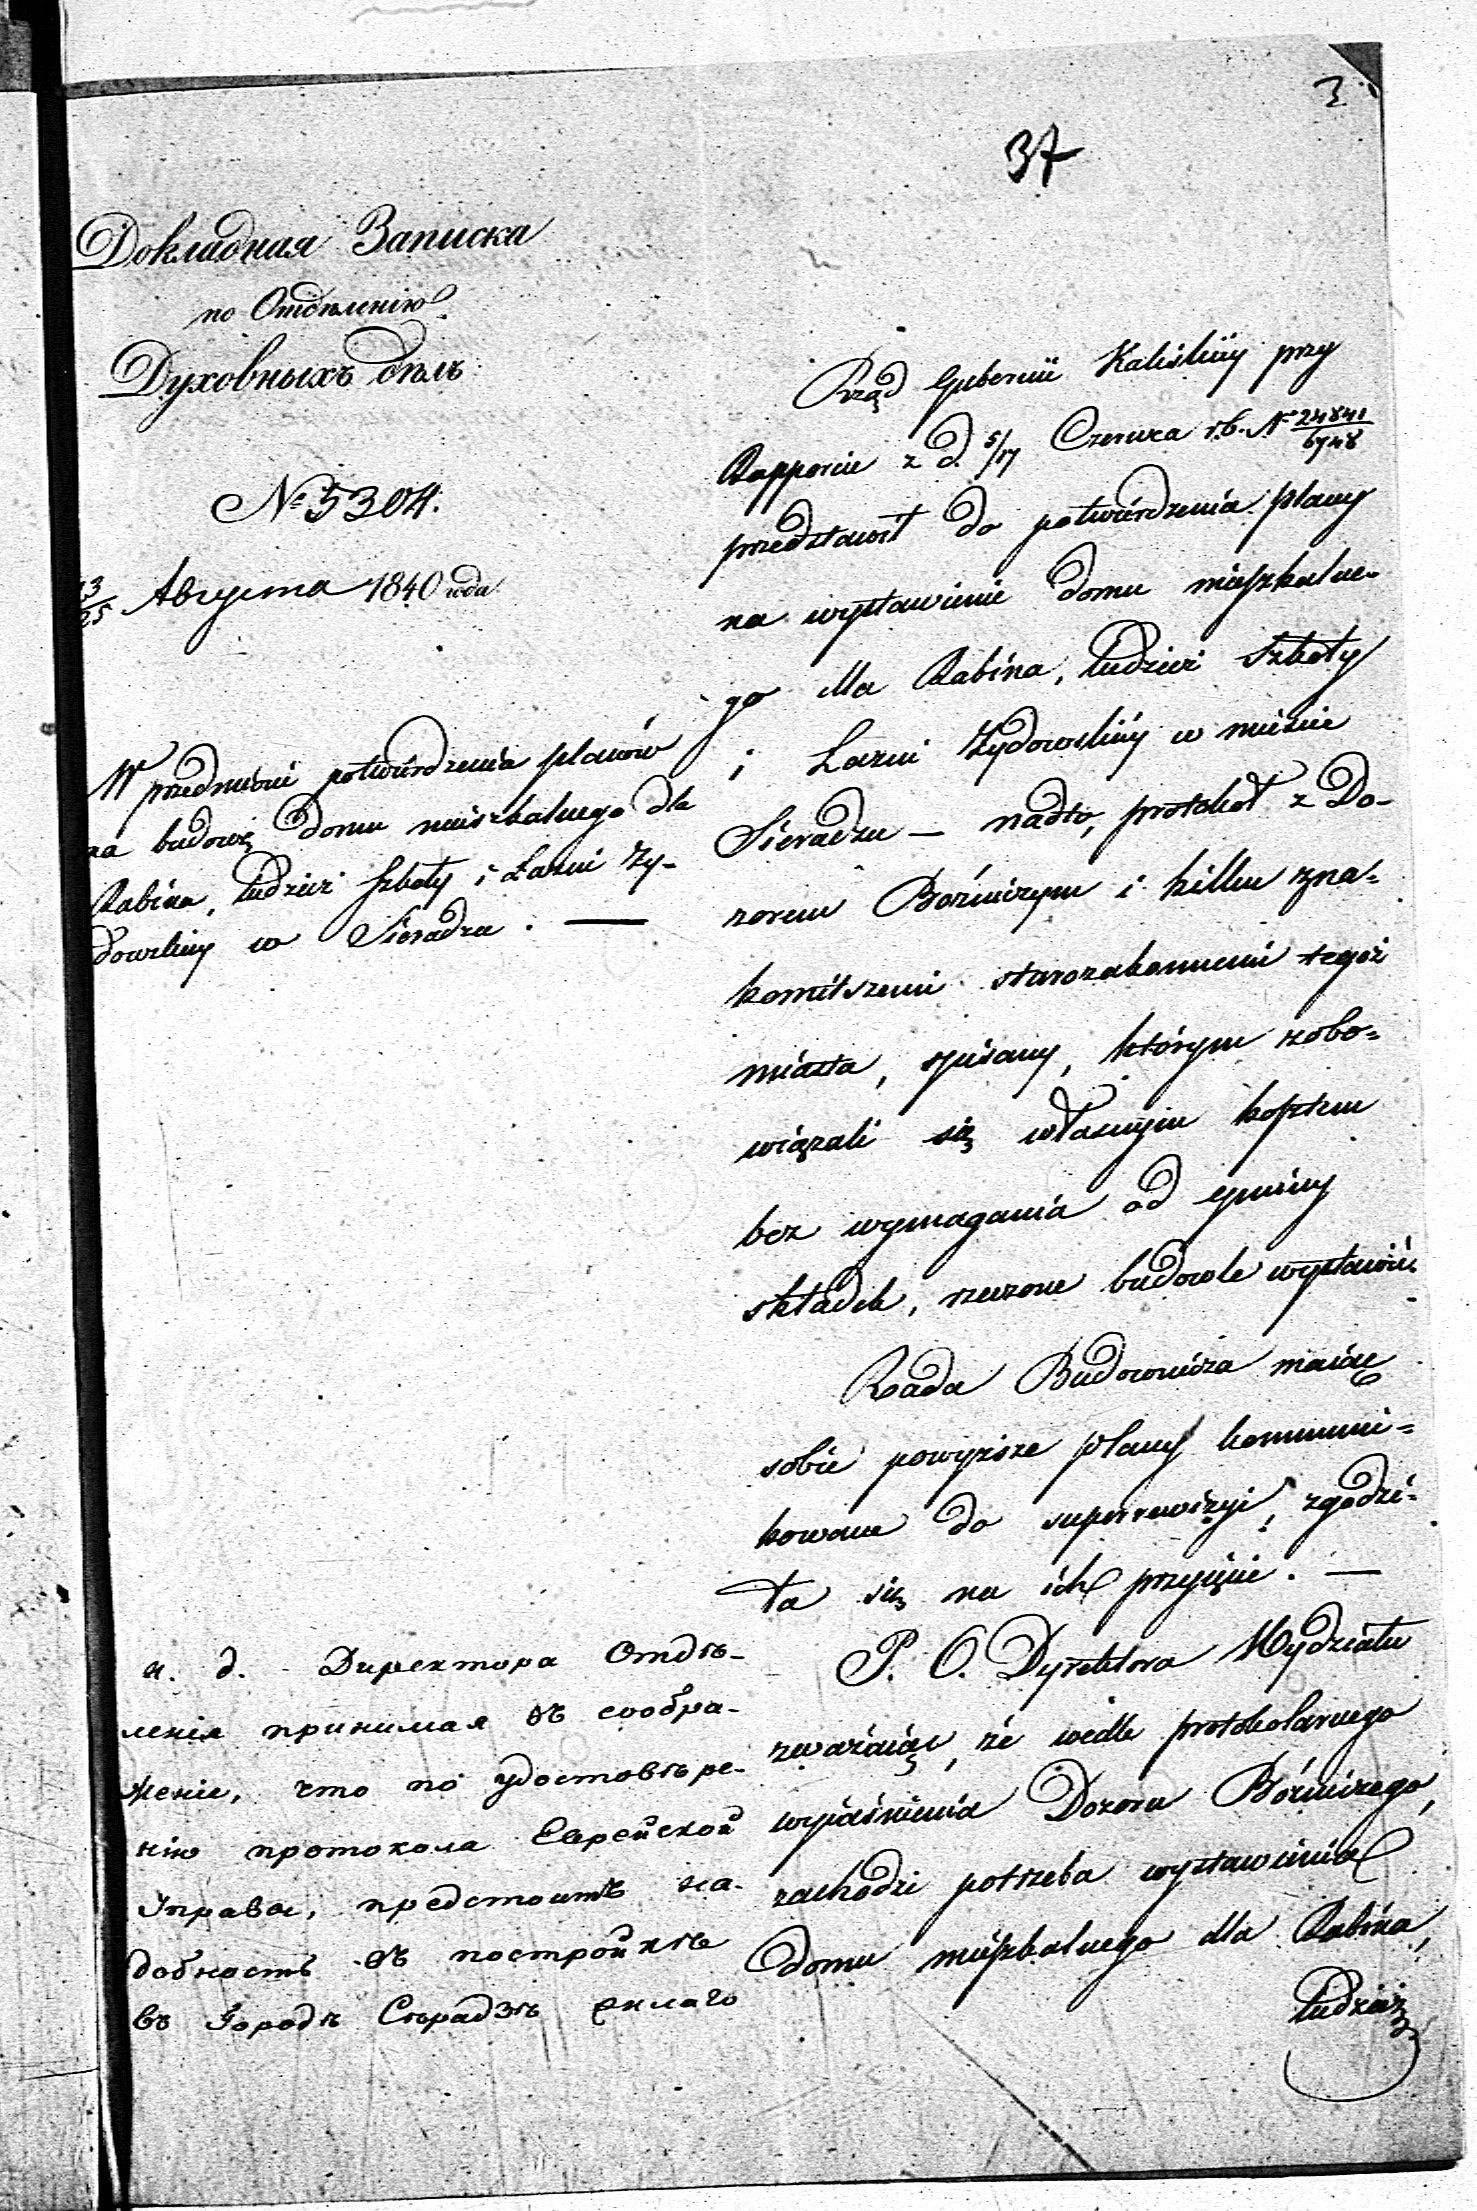 3
37
Докладная Записка
по Отдѣленію
Духовныхъ дѣлъ
№ 5304.
13/25 Августа 1840 года
W przedmiocie potwierdzenia planów
na budowę domu mieszkalnego dla
Rabina, tudzież Szkoły i Łazni Ży-
dowskiey w Sieradzu. —
Rząd Gubernii Kaliskiey przy
Rapporcie z d. 5/17 Czerwca r.b. N 24841/6948
przedstawił do potwierdzenia plany
na wystawienie domu mieszkalne-
go dla Rabina, tudzież Szkoły
i Łazni Żydowskiey w mieście
Sieradzu — nadto, protokół z Do-
zorem Bożniczym i kilku zna=
komitszemi starozakonnemi tegoż
miasta, spisany, którym zobo=
wiązali się własnym kosztem
bez wymagania od gminy
składek, rzeczone budowle wystawić.
Rada Budownicza maiąc
sobie powyższe plany kommuni=
kowane do superrewizyi, zgodzi-
ła się na ich przyięcie. —
P. O. Dyrektora Wydziału
zważaiąc, że wedle protokolarnego
wyjaśnienia Dozoru Bożniczego,
zachodzi potrzeba wystawienia
domu mieszkalnego dla Rabina,
tudzież
и. д. Директора Отдѣ-
ленія принимая въ сообра-
женіе, что по удостовѣре-
нію протокола Еврейской
Управы, предстоитъ на-
добность въ постройкѣ
въ Городѣ Сѣрадзѣ жилаго